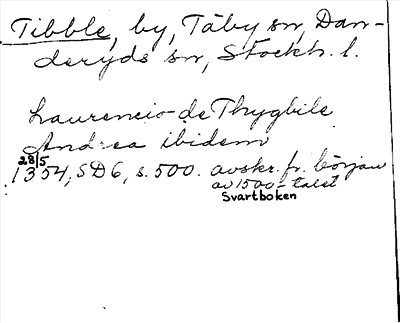 Tibble, by, Täby sn, Dan-
deryds sn, Stockh. l.
Laurencio de Thygbile
Andrea ibidem
28/5
1354, SD6, s. 500. avskr. fr. början
av 1500-talet
Svartboken